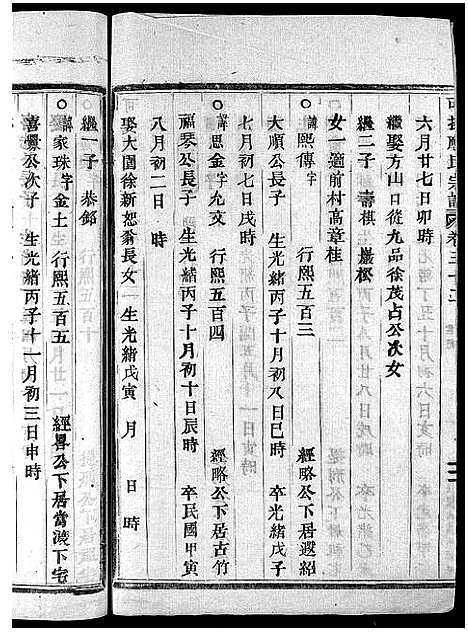 六月廿七日卯時
繼娶方山口從九品徐茂占公次女
繼二子 壽棋 嚴松
女一適前村高章桂
諱熙傳字 行熙五百三 經略公下居遐紹
大順公長子 生光緒丙子十月初八日巳時 卒光緒戊子
七月初七日戌時
○諱思金字允文 行熙五百四 經略公下居古竹
福琴公長子 生光緒丙子十月初十日辰時 卒民國甲寅
八月初二日 時
娶大園徐新恕翁長女 生光緒戊寅 月 日 時
繼一子 恭鄒
○諱家珠字金土 行熙五百五 經畧公下居當渡下宅
喜釁公次子 生光緒丙子十一月初三日申時